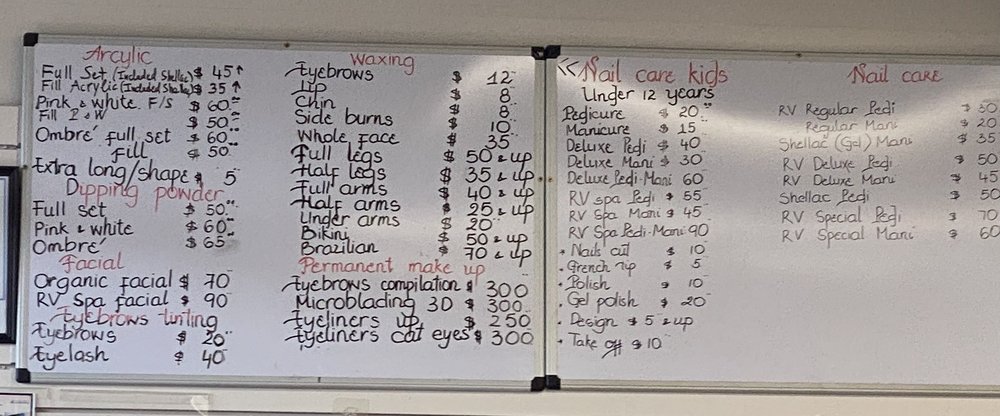 Arcylic
Full Set (Included Shellac) $ 45↑
Fill Acrylic (Included Shellac) $ 35↑
Pink & white F/S $ 60
Fill P & W $ 50
Ombré full set $ 60
fill $ 50
Extra long/shape $ 5
Dipping powder
Full set $ 50
Pink & white $ 60
Ombré $ 65
Facial
Organic facial $ 70
RV Spa facial $ 90
Eyebrows tinting
Eyebrows $ 20
Eyelash $ 40
Waxing
Eyebrows $ 12
Lip $ 8
Chin $ 8
Side burns $ 10
Whole face $ 35
Full legs $ 50 & up
Half legs $ 35 & up
Full arms $ 40 & up
Half arms $ 25 & up
Under arms $ 20
Bikini $ 50 & up
Brazilian $ 70 & up
Permanent make up
Eyebrows compilation $ 300
Microblading 3D $ 300
Eyeliners up $ 250
Eyeliners cat eyes $ 300
<< Nail care kids
Under 12 years
Pedicure $ 20
Manicure $ 15
Deluxe Pedi $ 40
Deluxe Mani $ 30
Deluxe Pedi-Mani 60
RV spa Pedi $ 55
RV Spa Mani $ 45
RV Spa Pedi-Mani 90
• Nails cut $ 10
• French tip $ 5
• Polish $ 10
• Gel polish $ 20
• Design $ 5 & up
• Take off $ 10
Nail care
RV Regular Pedi $ 30
Regular Mani $ 20
Shellac (Gel) Mani $ 35
RV Deluxe Pedi $ 50
RV Deluxe Mani $ 45
Shellac Pedi $ 50
RV Special Pedi $ 70
RV Special Mani $ 60